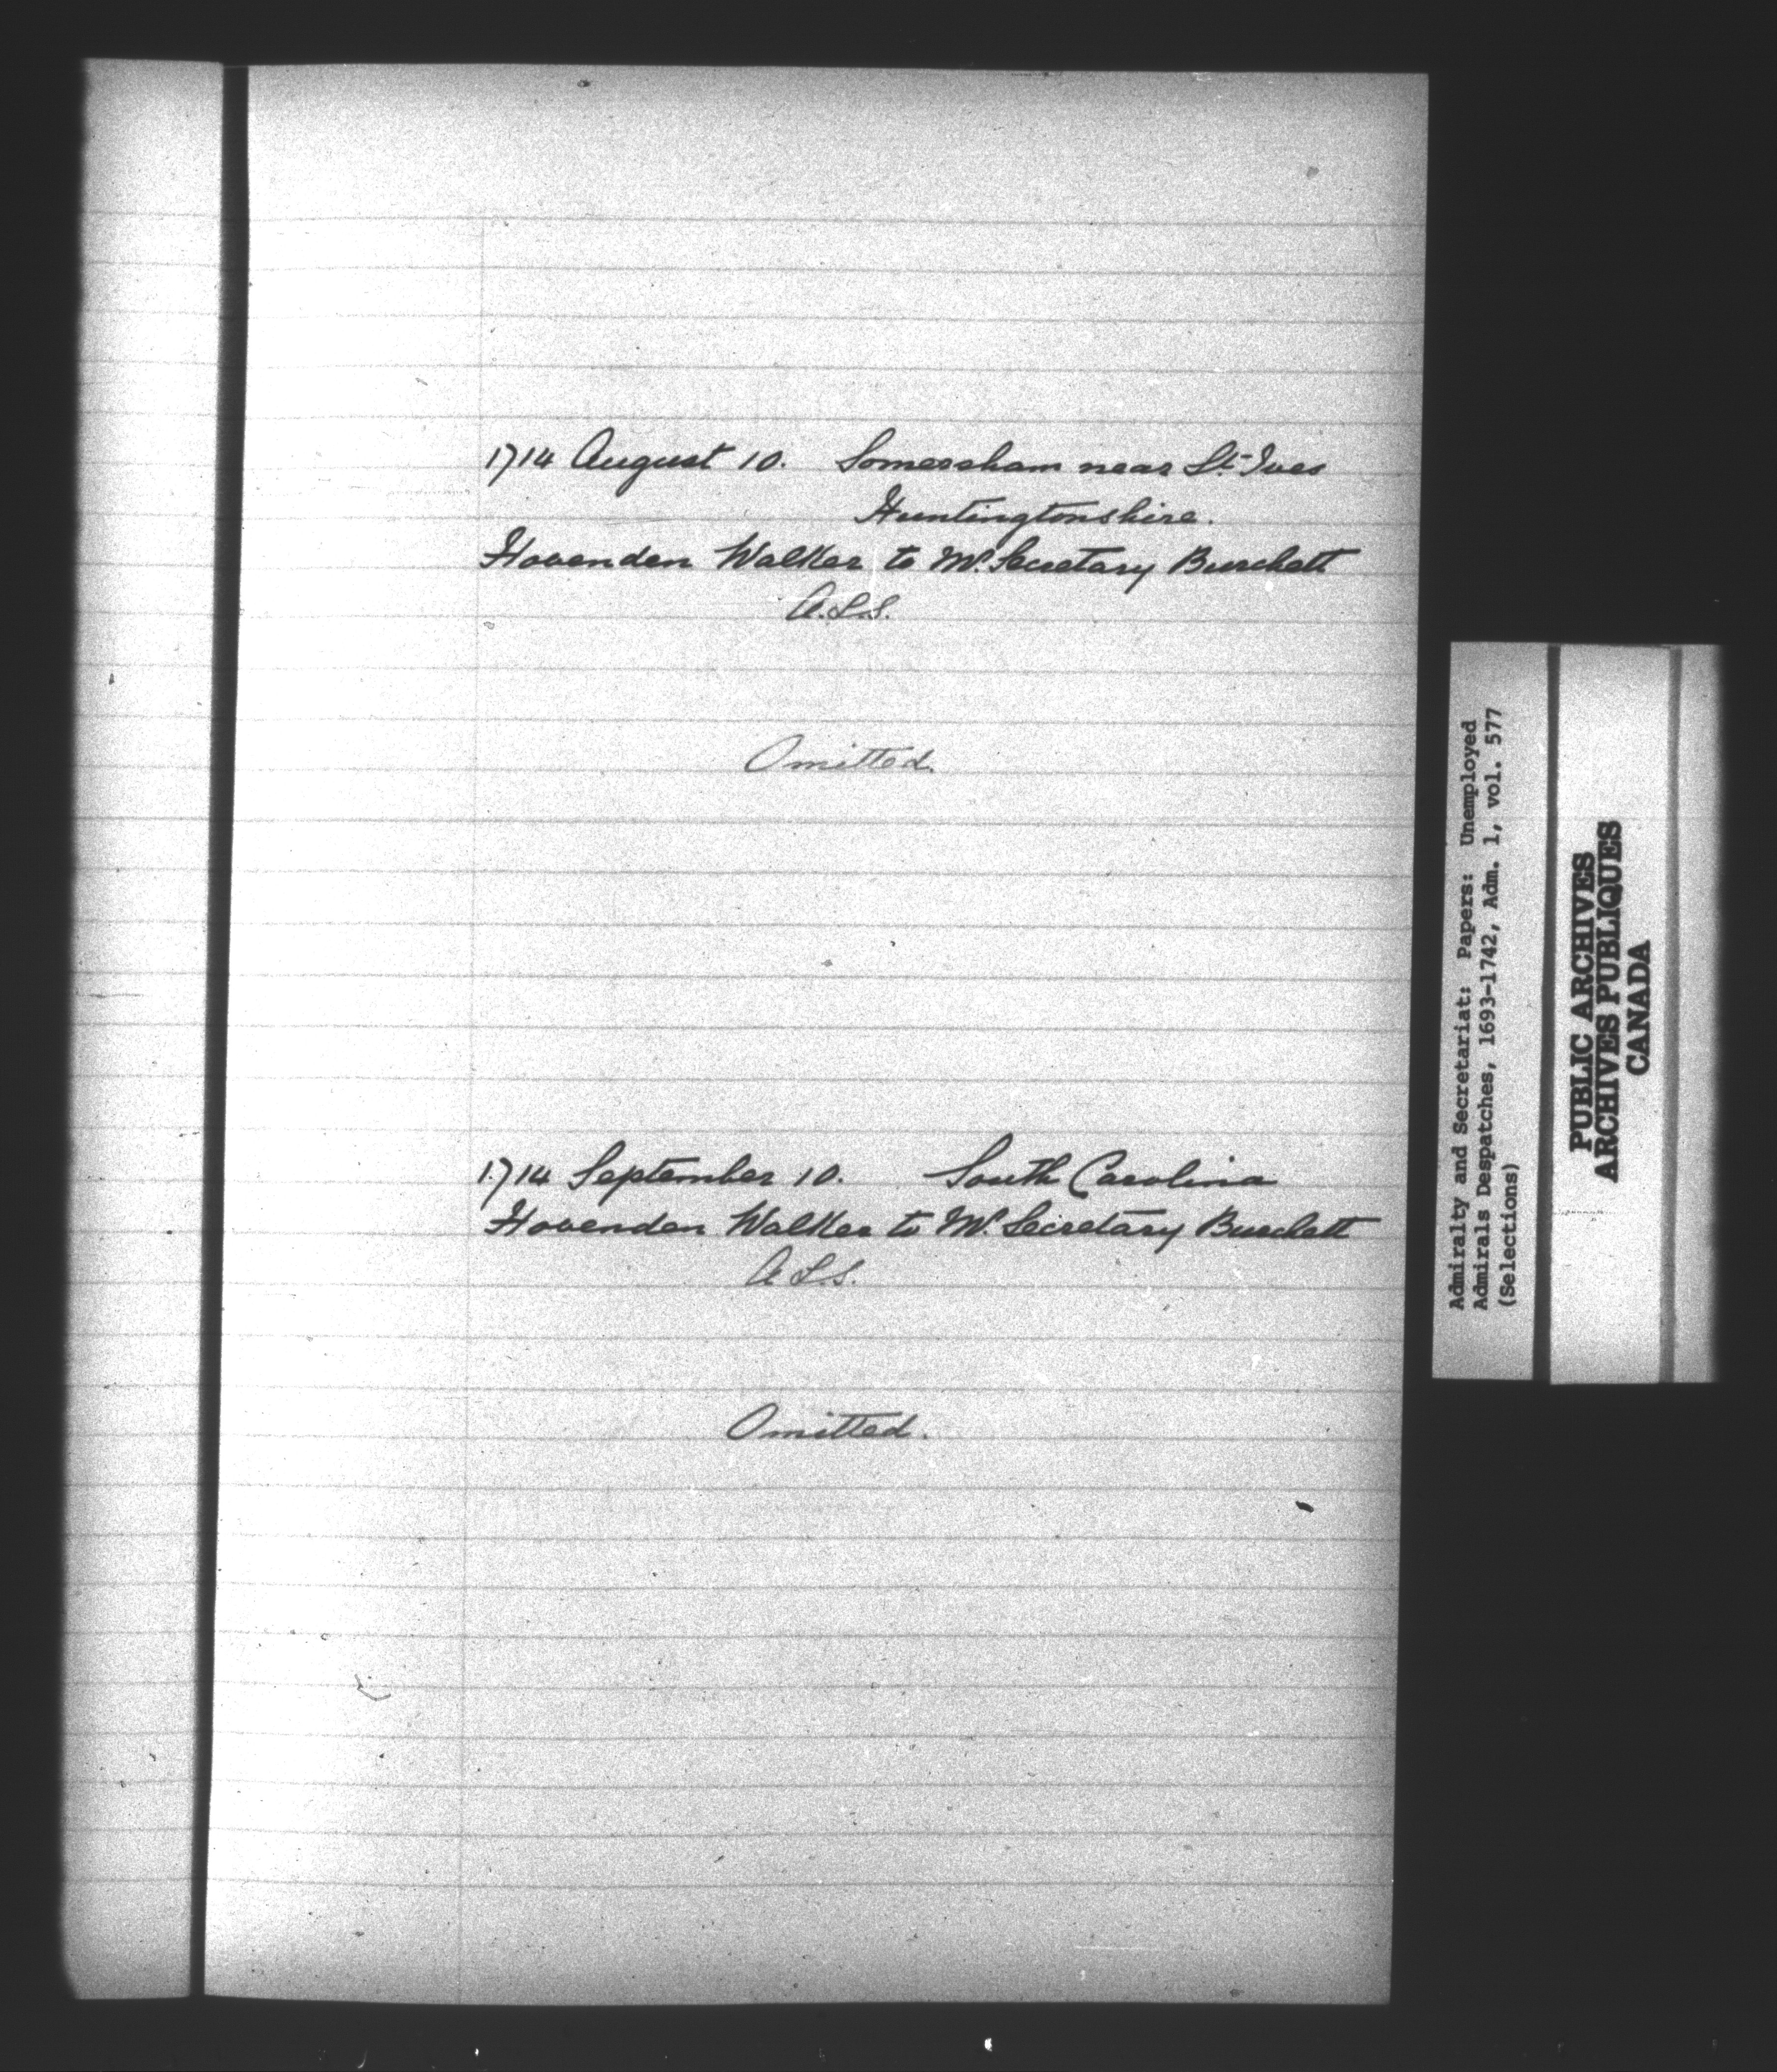 1714 August 10. Somersham near St. Ives
Huntingtonshire.
Hovenden Walker to Mr. Secretary Burchett
A.L.S.
Omitted.
1714 September 10. South Carolina
Hovenden Walker to Mr. Secretary Burchett
A L.S.
Omitted.
Admiralty and Secretariat: Papers: Unemployed
Admirals Despatches, 1693-1742, Adm. 1, vol. 577
(Selections)
PUBLIC ARCHIVES
ARCHIVES PUBLIQUES
CANADA